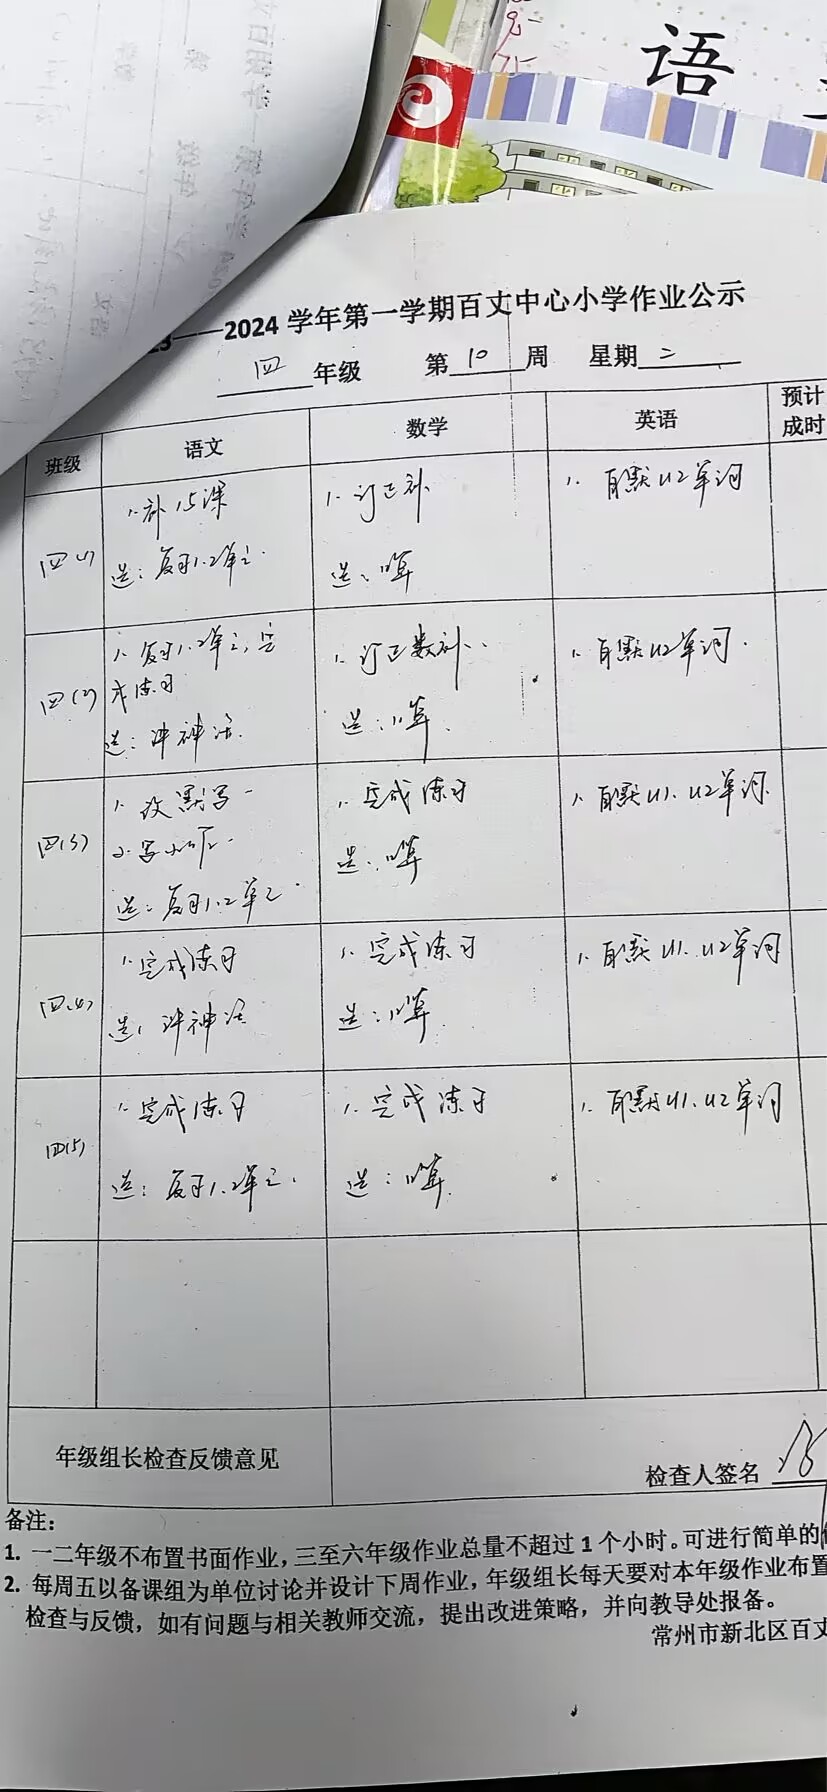 语
——2024 学年第一学期百丈中心小学作业公示
四 年级 第 10 周 星期 二
班级 语文 数学 英语 预计
成时
四(1)
1. 补15课
选：复习1.2单元.
1. 订正补
选：口算
1. 自默U2单词
四(2)
1. 复习1.2单元，完
成练习
选：讲神话.
1. 订正数补.
选：口算.
1. 自默U2单词.
四(3)
1. 改默写
选：复习1.2单元.
1. 完成练习
选：口算
1. 自默U1. U2单词.
四(4)
1. 完成练习
选：讲神话
1. 完成练习
选：口算.
1. 自默U1. U2单词
四(5)
1. 完成练习
选：复习1.2单元.
1. 完成练习
选：口算.
1. 自默U1. U2单词
年级组长检查反馈意见
检查人签名
备注：
1. 一二年级不布置书面作业，三至六年级作业总量不超过 1 个小时。可进行简单的
2. 每周五以备课组为单位讨论并设计下周作业，年级组长每天要对本年级作业布置
检查与反馈，如有问题与相关教师交流，提出改进策略，并向教导处报备。
常州市新北区百丈